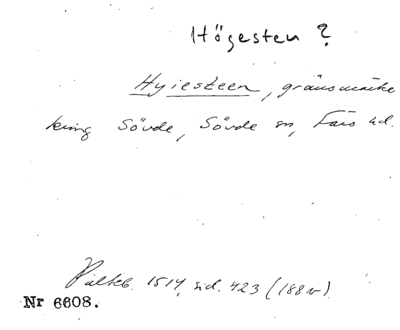 Högesten ?
Hyiesteen, gränsmärke
kring Sövde, Sövde sn, Färs hd.
Pälteb. 1514, sid. 423 (188 v).
Nr 6608.